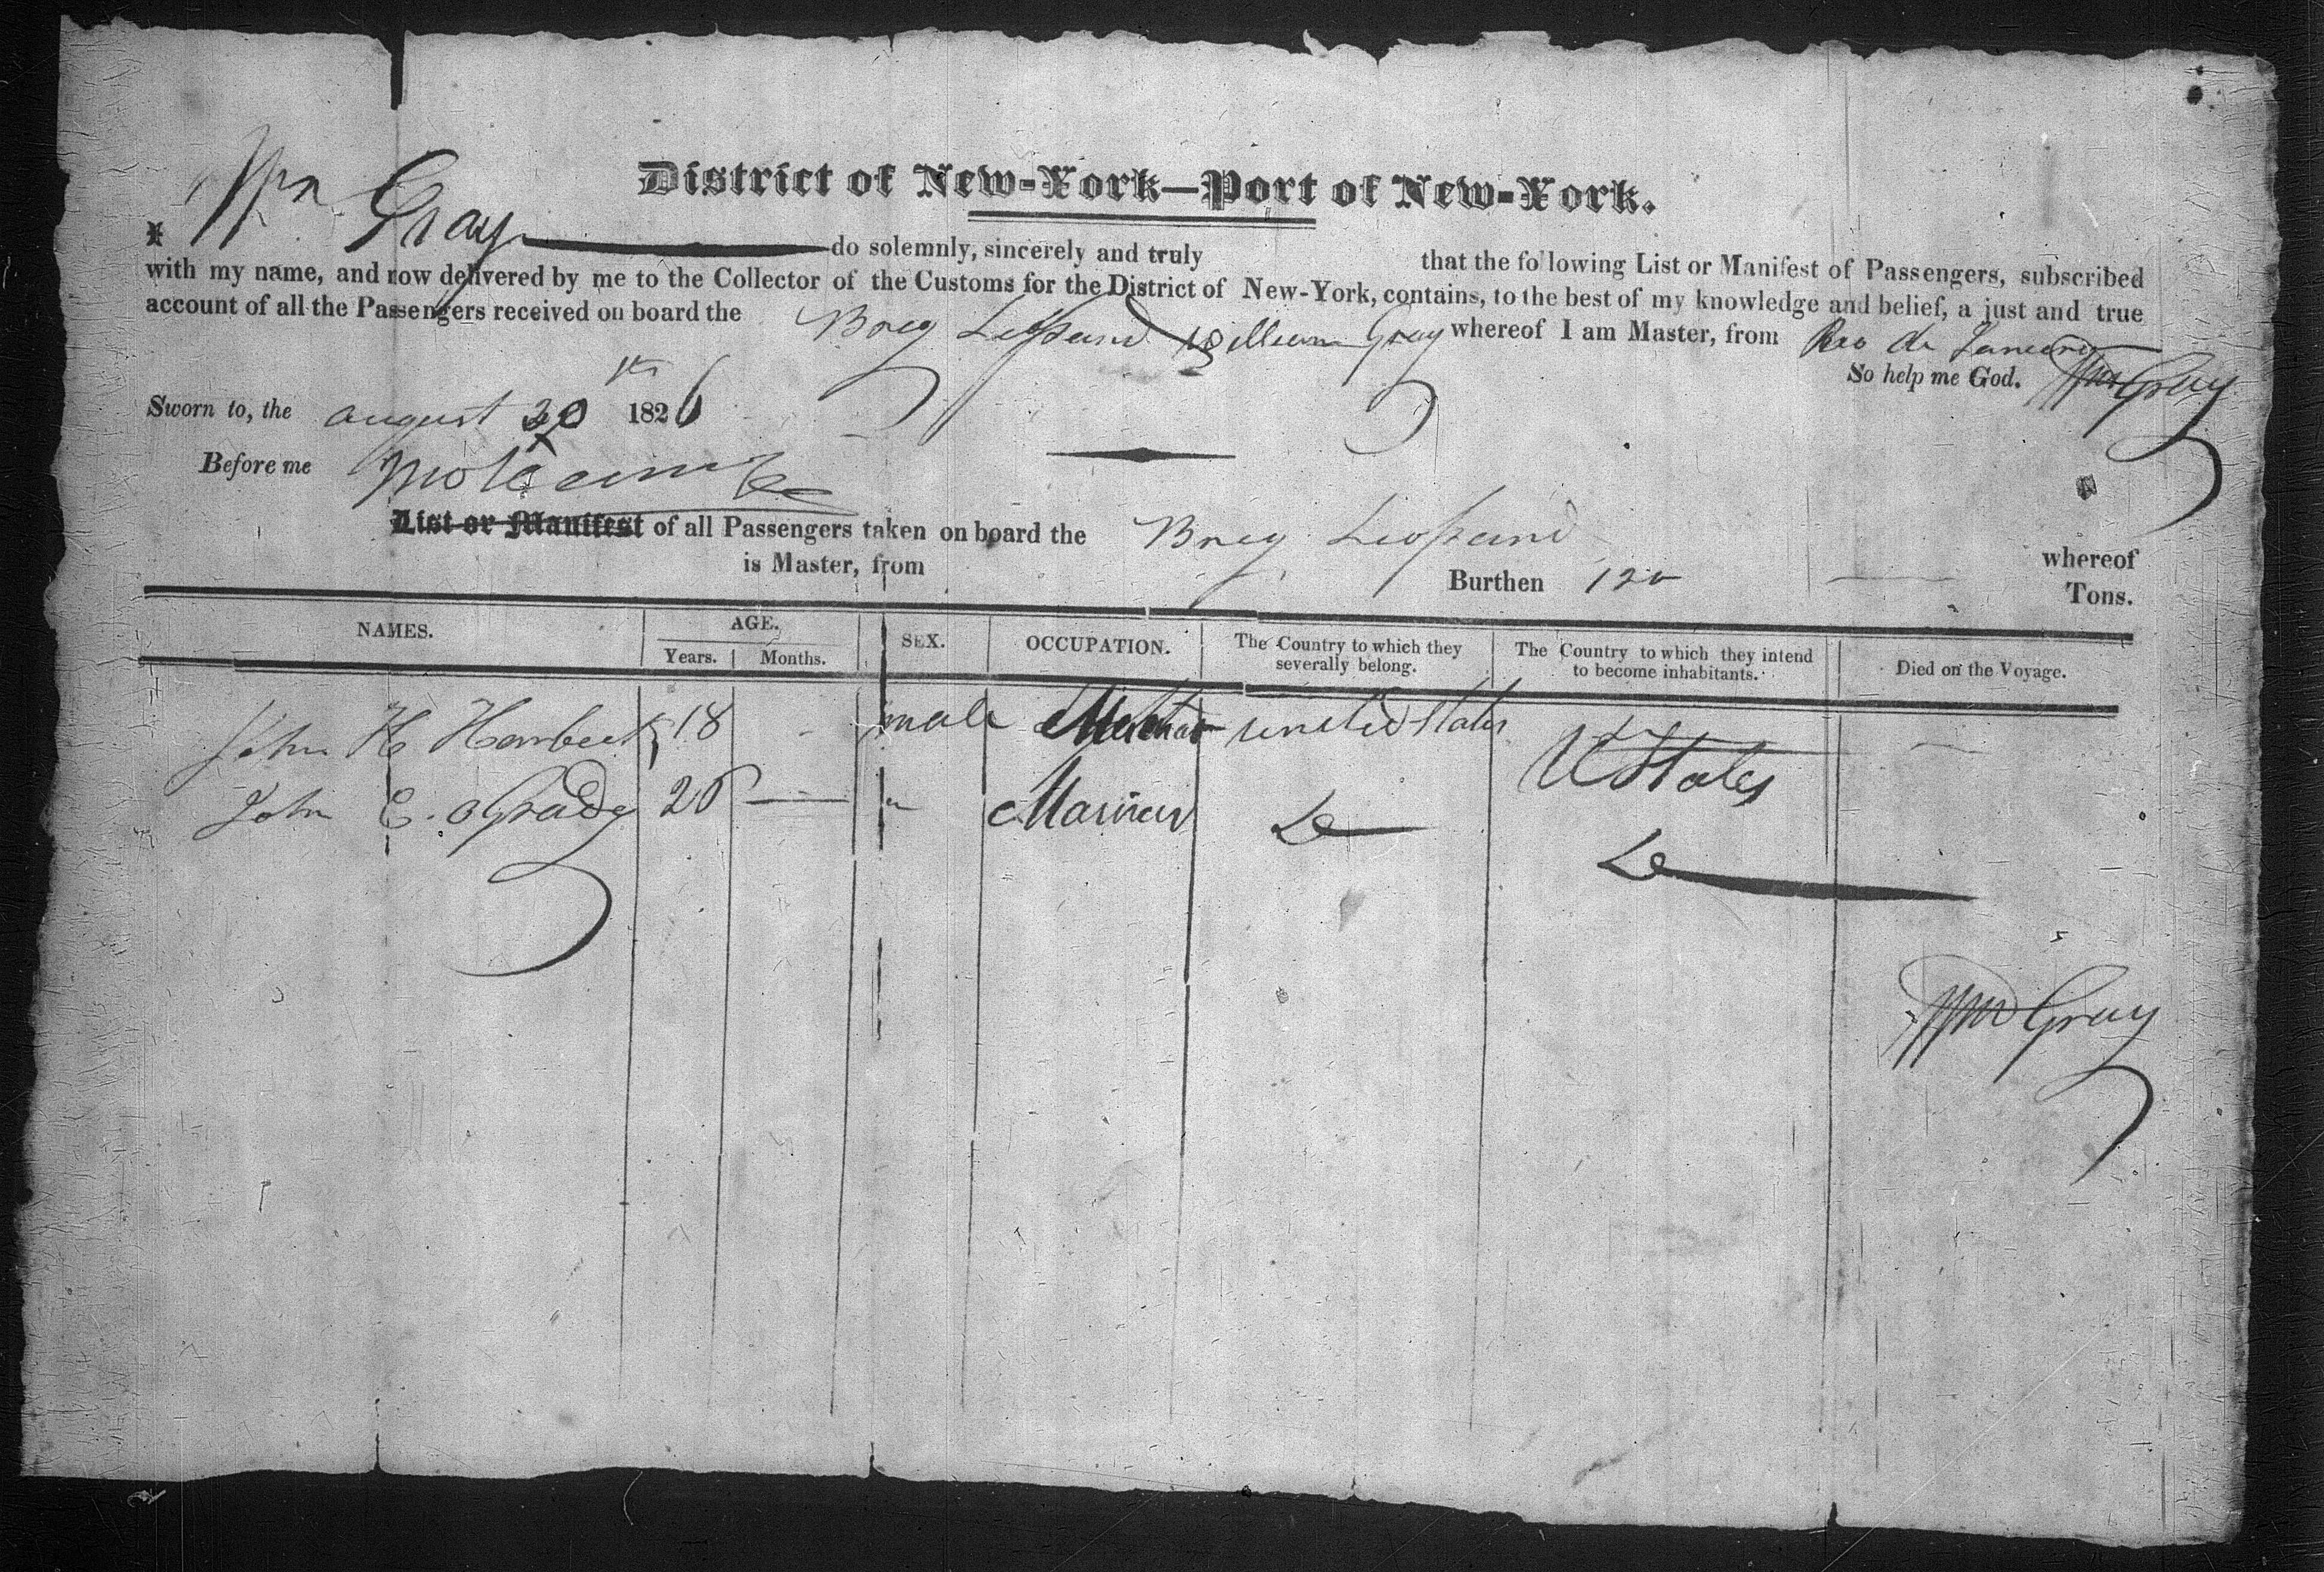 District of New-York—Port of New-York.
I Wm Gray do solemnly, sincerely and truly that the following List or Manifest of Passengers, subscribed
with my name, and now delivered by me to the Collector of the Customs for the District of New-York, contains, to the best of my knowledge and belief, a just and true
account of all the Passengers received on board the Breg Leopard William Gray whereof I am Master, from Reo de Janeiro
So help me God. Wm Gray
Sworn to, the august 30 1826
Before me
List or Manifest of all Passengers taken on board the Breg Leopard whereof
is Master, from Burthen 120 Tons.
NAMES. AGE. SEX. OCCUPATION. The Country to which they severally belong. The Country to which they intend to become inhabitants. Died on the Voyage.
Years. Months.
John H Harbeck 18 - male united States U States
John E. oGrady 26 — " Mariner Do Do
Wm Gray